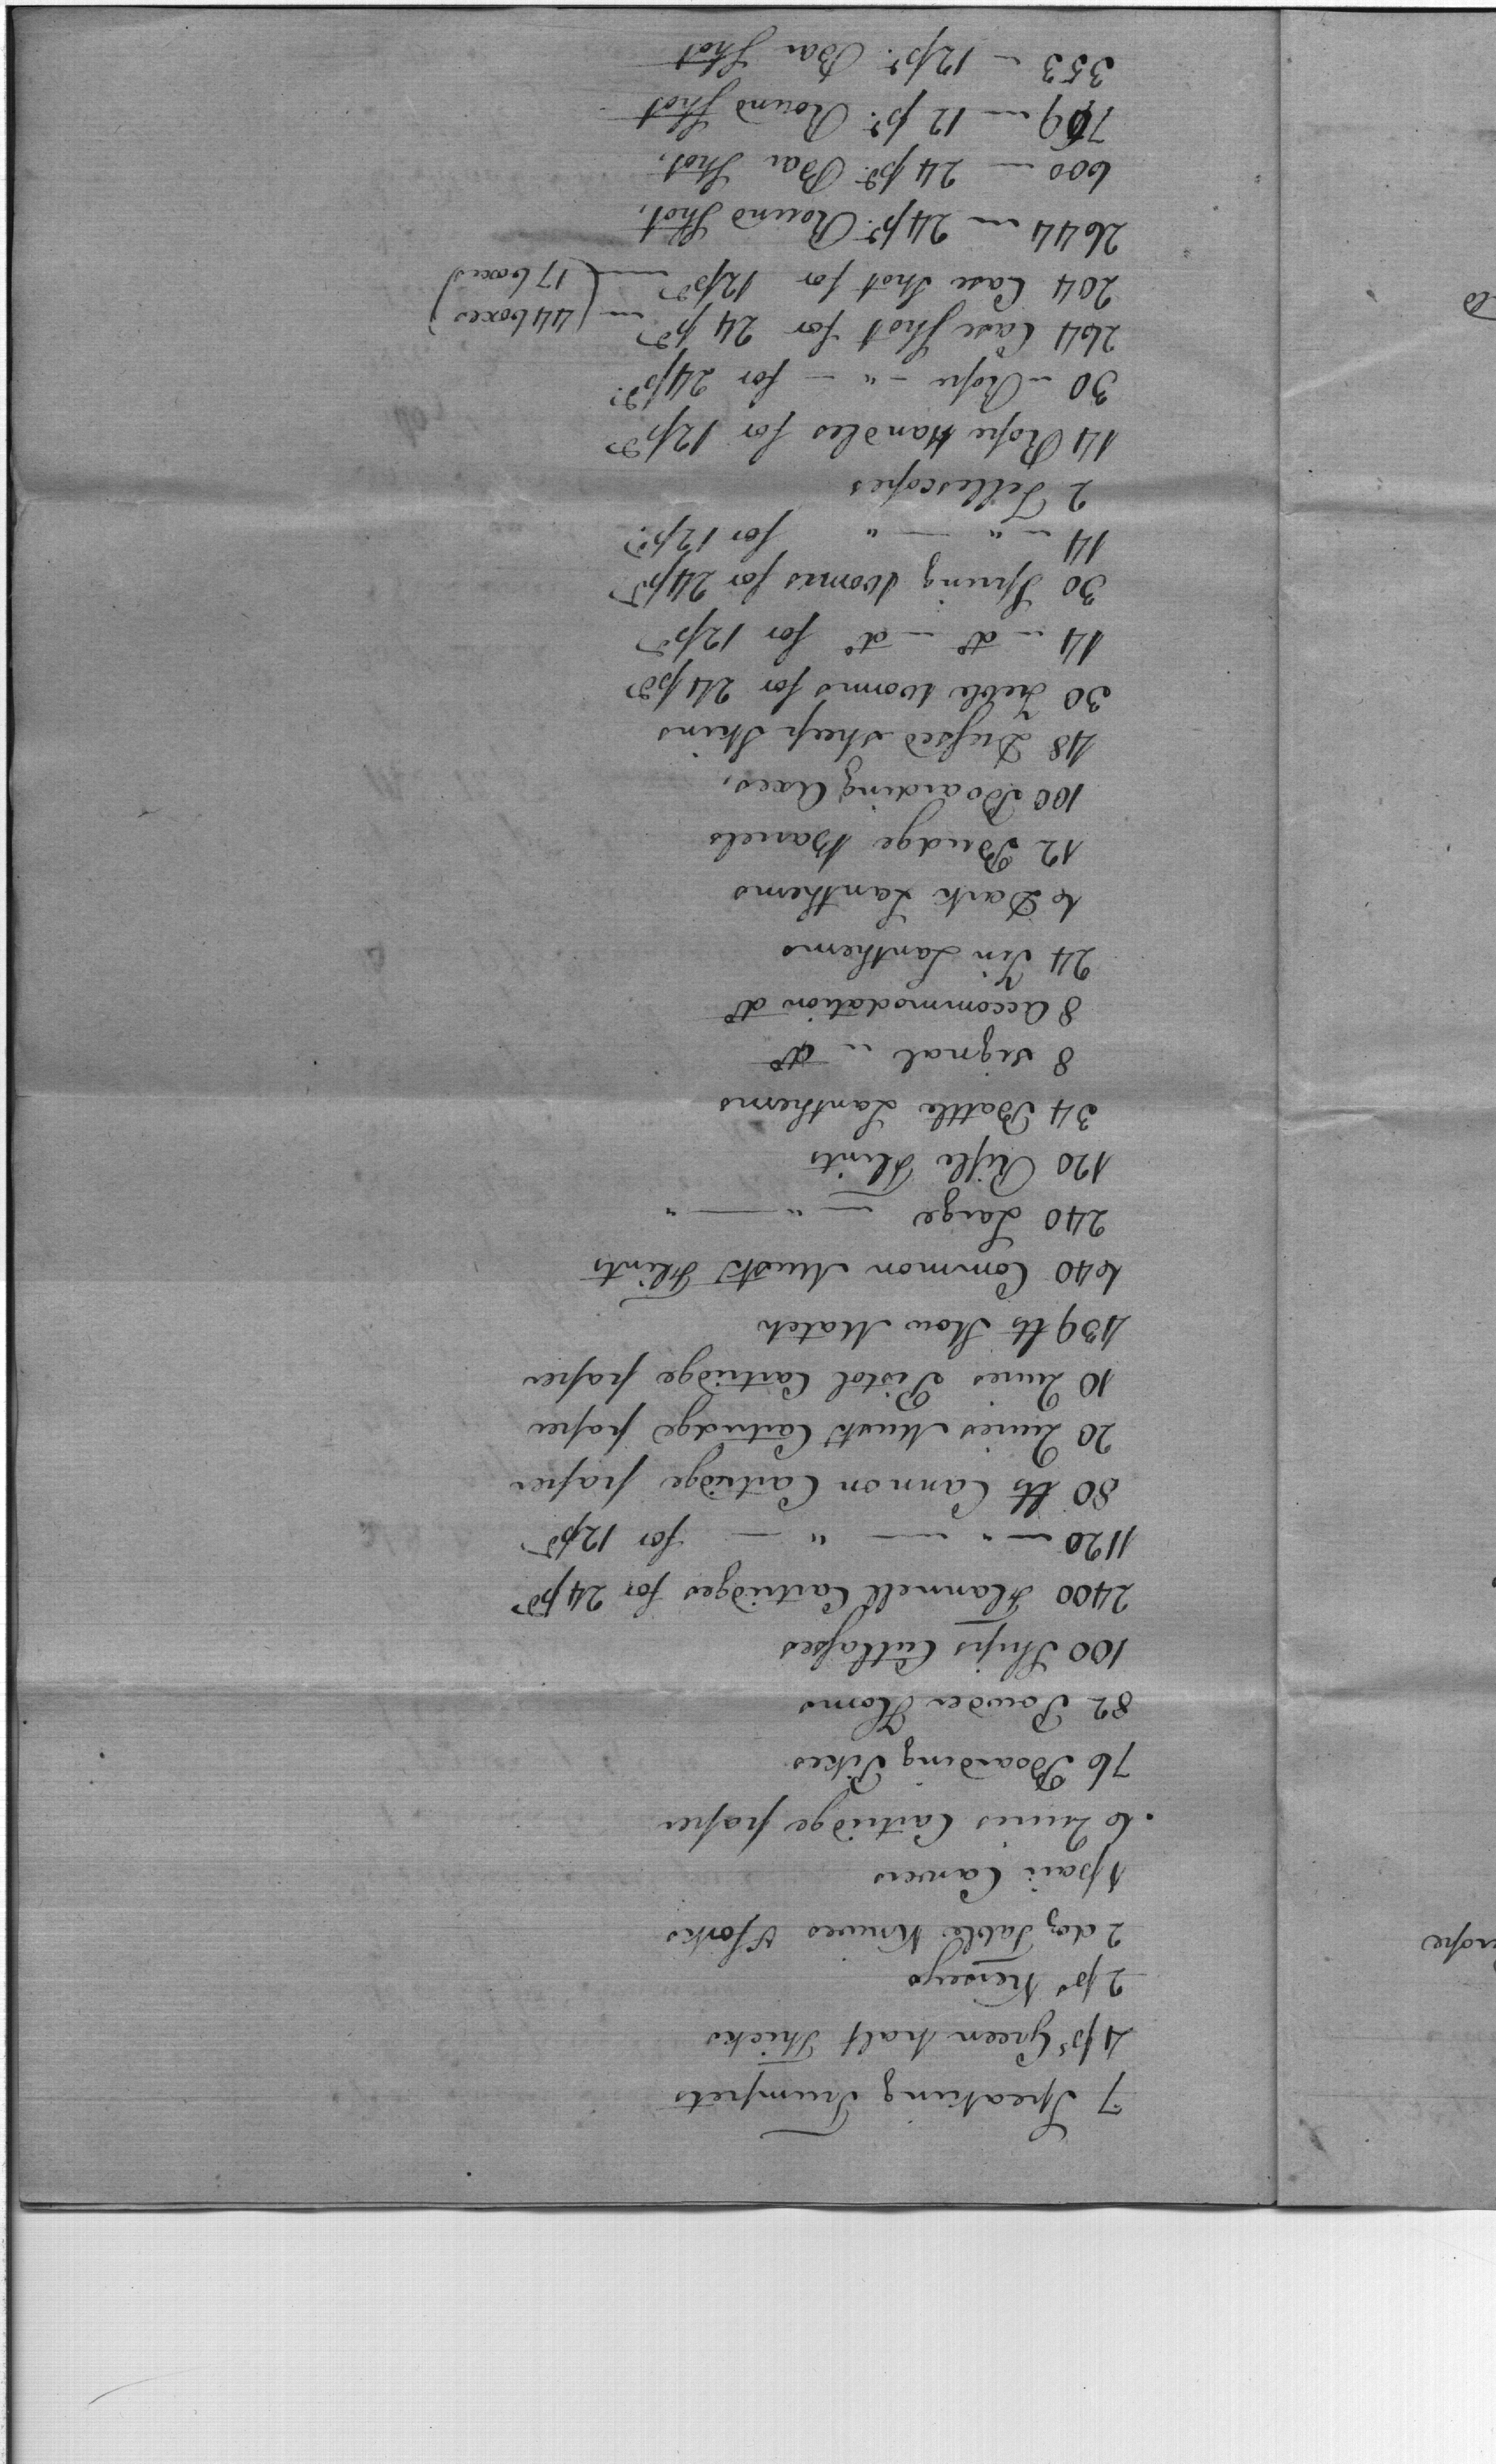 7 Speaking Trumpets
4 ps Green half Thicks
2 ps Kerseys
2 doz Table Knives & forks
1 pair Carvers
6 Quires Cartridge paper
76 Boarding Pikes
82 Powder Horns
100 Ships Cutlasses
2400 Flannell Cartridges for 24 pd
1120 — " — " — for 12 pd
80 lb Cannon Cartridge paper
20 Quires Muskt Cartridge paper
10 Quires Pistol Cartridge paper
439 lb Slow Match
640 Common Muskt Flints
240 Large — " — "
120 Rifle Flints
34 Battle Lanthorns
8 Signal " do
8 Accommodation do
24 Tin Lanthorns
6 Dark Lanthorns
12 Budge Barrels
100 Boarding Axes,
48 Dressed Sheep Skins
30 Ladle Worms for 24 pd
14 - do - do for 12 pd
30 Spring Worms for 24 pd
14 - " — " for 12 pd
2 Tellescopes
14 Rope Handles for 12 pd
30 - Rope - " - for 24 pd
264 Case Shot for 24 pd — (44 boxes)
204 Case Shot for 12 pd — (17 boxes)
2644 — 24 pd. Round Shot,
600 — 24 pd. Bar Shot,
769 — 12 pd. Round Shot
353 - 12 pd. Bar Shot